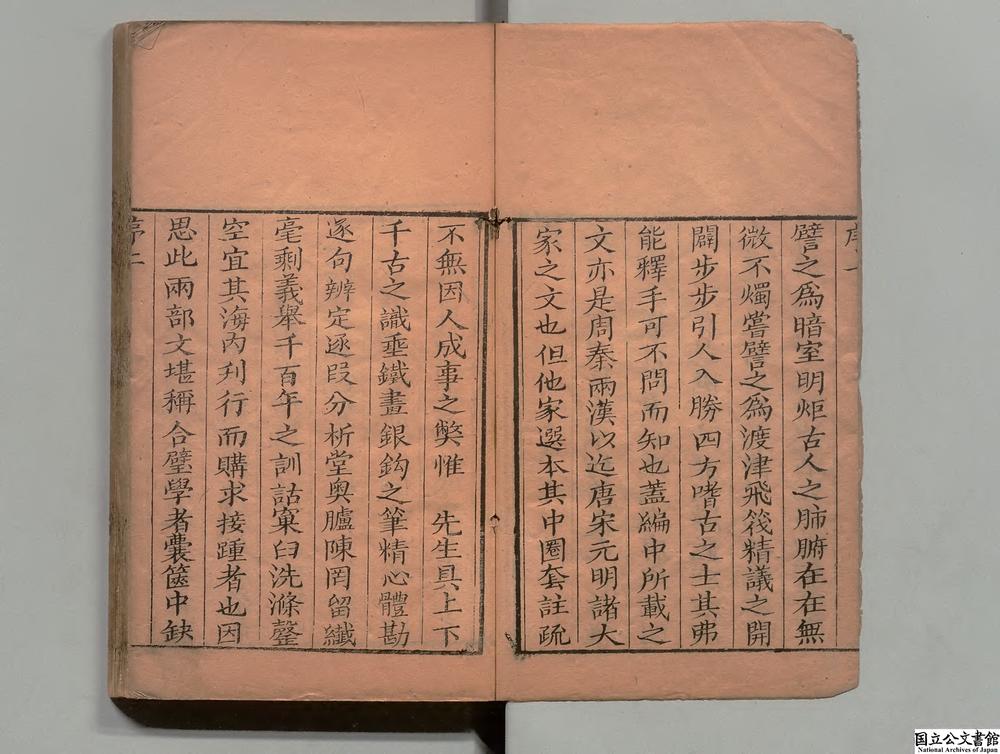 序一
譬之爲暗室明炬古人之肺腑在在無
微不燭嘗譬之爲渡津飛筏精議之開
闢步步引人入勝四方嗜古之士其弗
能釋手可不問而知也蓋編中所載之
文亦是周秦兩漢以迄唐宋元明諸大
家之文也但他家選本其中圈套註疏
不無因人成事之弊惟 先生具上下
千古之識垂鐵畫銀鈎之筆精心體勘
逐句辨定逐段分析堂奧臚陳罔留纖
毫剩義舉千百年之訓詁窠臼洗滌罄
空宜其海內刋行而購求接踵者也因
思此兩部文堪稱合璧學者囊篋中缺
序二
国立公文書館
National Archives of Japan